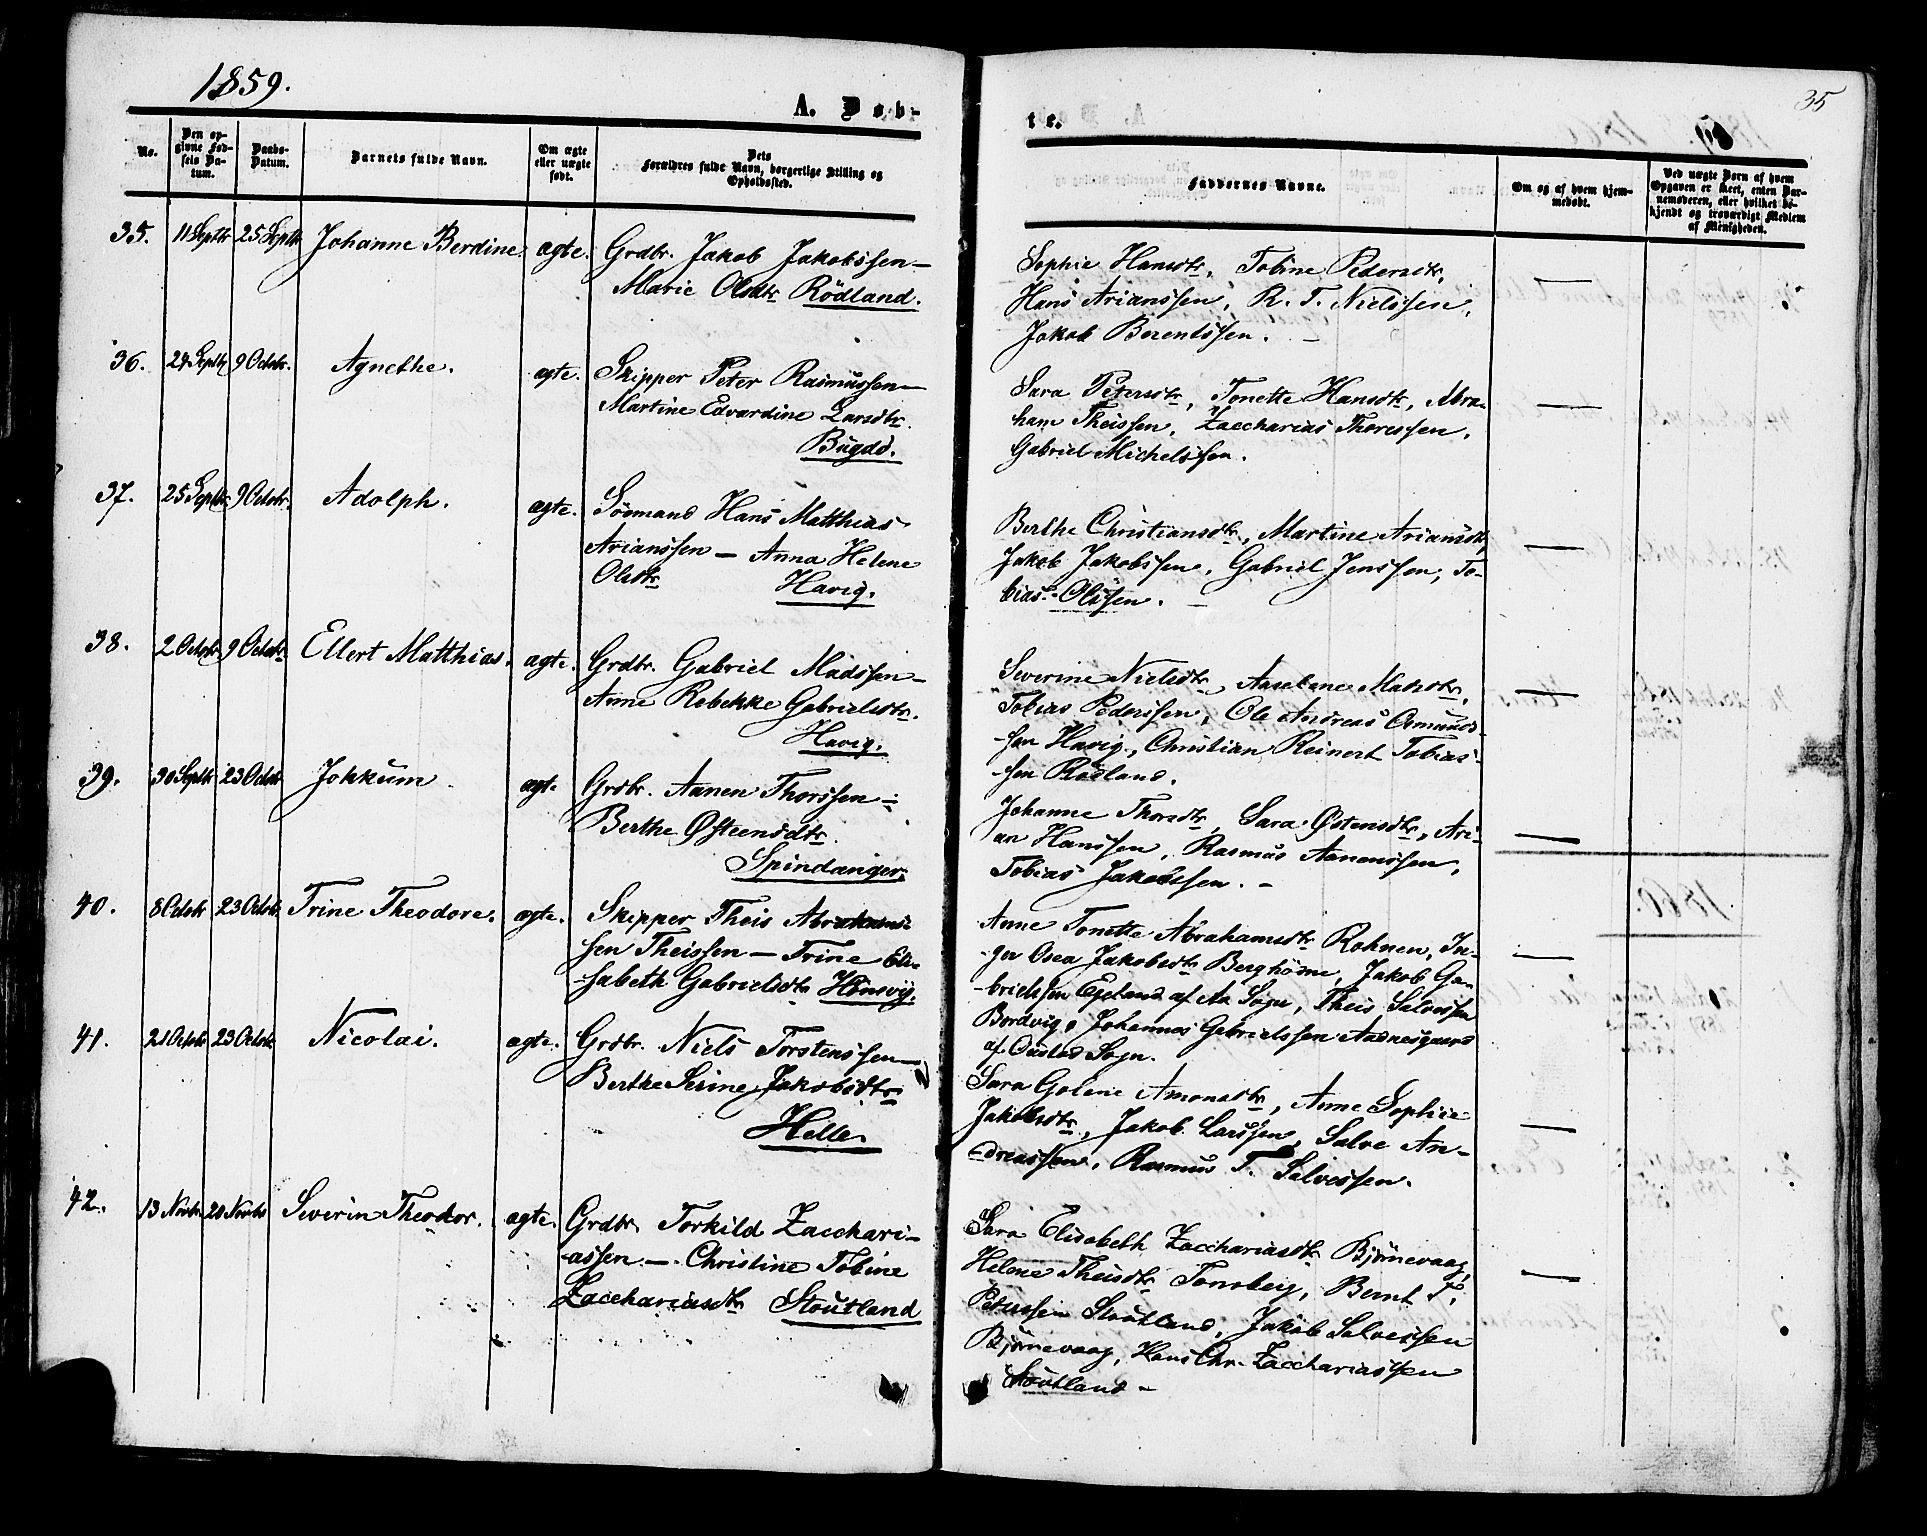 1859.
A. Døb-
te.
35
No.
Den opgivne Fødsels Datum.
Daabs-Datum.
Barnets fulde Navn.
Om ægte eller uægte født.
Dets Forældres fulde Navn, borgerlige Stilling og Opholdssted.
Faddernes Navne.
Om og af hvem hjemmedøbt.
Ved uægte Børn af hvem Opgaven er skeet, enten Barnemoderen, eller hvilket bekjendt og troværdigt Medlem af Menigheden.
35. 11 Septbr 25 Septbr Johanne Berdine. ægte. Grdbr. Jakob Jakobssen –
Marie Olsdtr Rödland.
Sophie Hansdtr, Tobine Pedersdtr,
Hans Arianssen, R. T. Nielssen,
Jakob Berentssen. –
36. 24 Septbr 9 Octobr. Agnethe. ægte. Skipper Peter Rasmussen –
Martine Edvardine Larsdtr.
Bugdö.
Sara Petersdtr, Tonette Hansdtr, Abra-
ham Theissen, Zaccharias Thoressen,
Gabriel Michelssen.
37. 25 Septbr 9 Octobr. Adolph. ægte. Sömand Hans Matthias
Arianssen – Anna Helene
Olsdtr Havig.
Berthe Christiansdtr, Martine Ariansdtr,
Jakob Jakobssen, Gabriel Jenssen, To-
bias Olssen. –
38. 2 Octobr 9 Octobr Ellert Matthias. ægte. Grdbr. Gabriel Madssen –
Anne Rebekke Gabrielsdtr.
Havig.
Severine Nielsdtr, Aaselene Madsdtr,
Tobias Pederssen, Ole Andreas Osmunds-
sen Havig, Christian Reinert Tobias-
sen Rödland.
39. 30 Septbr 23 Octobr Jokkum ægte. Grdbr. Aanen Thorssen –
Berthe Østensdtr.
Spindanger.
Johanne Thorsdtr, Sara Østensdtr, Ari-
an Hanssen, Rasmus Aanenssen,
Tobias Jakobssen. –
40. 8 Octobr 23 Octobr. Trine Theodore. ægte. Skipper Theis Abrahams-
sen Theissen – Trine Eli-
sabeth Gabrielsdtr Hönsvig.
Anne Tonette Abrahamsdtr Rohnen, In-
ger Osea Jakobsdtr Berghöine, Jakob Ga-
brielssen Egeland af Aa Sogn, Theis Salvessen
Bordvig, Johannes Gabrielssen Aadnesgaard
af Sogn.
41. 21 Octobr 23 Octobr Nicolai. ægte. Grdbr. Niels Torstenssen –
Berthe Serine Jakobsdtr
Helle.
Sara Golene Amonsdtr, Anne Sophie
Jakobsdtr, Jakob Larssen, Salve An-
dreassen, Rasmus T. Salvessen.
42. 13 Novbr. 20 Novbr Severin Theodor. ægte. Grdbr. Torkild Zacchari-
assen – Christine Tobine
Zacchariasdtr Stoutland
Sara Elisabeth Zacchariasdtr Bjørnevaag,
Helene Theisdtr Tonsberg, Bernt T.
Peterssen Stoutland, Jakob Salvessen
Bjørnevaag, Hans Chr. Zacchariassen
Stoutland –
1860.